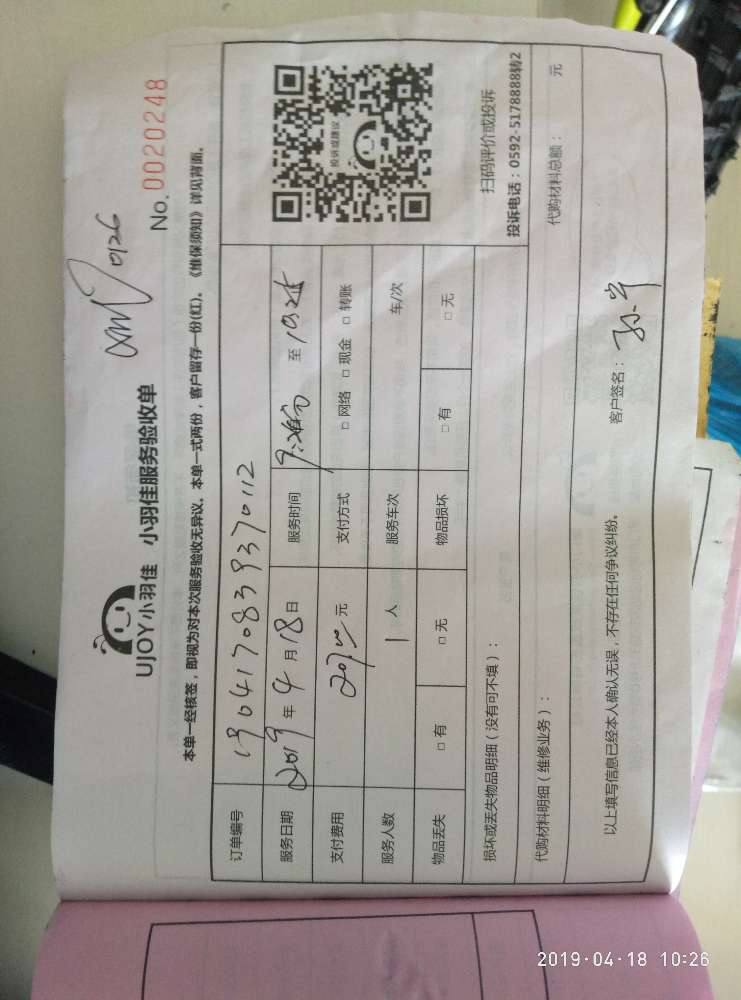 UJOY小羽佳 小羽佳服务验收单
0126
No. 0020248
本单一经核签，即视为对本次服务验收无异议。本单一式两份，客户留存一份(红)。《维保须知》详见背面。
订单编号 1904170839370112
服务日期 2019 年 4 月 18 日 服务时间 至 10:25
支付费用 元 支付方式 □ 网络 □ 现金 □ 转账
服务人数 1 人 服务车次 车/次
物品丢失 □ 有 □ 无 物品损坏 □ 有 □ 无
投诉或建议
扫码评价或投诉
投诉电话：0592-5178888转2
损坏或丢失物品明细（没有可不填）：
代购材料明细（维修业务）： 代购材料总额： 元
以上填写信息已经本人确认无误，不存在任何争议纠纷。 客户签名：
2019-04-18 10:26